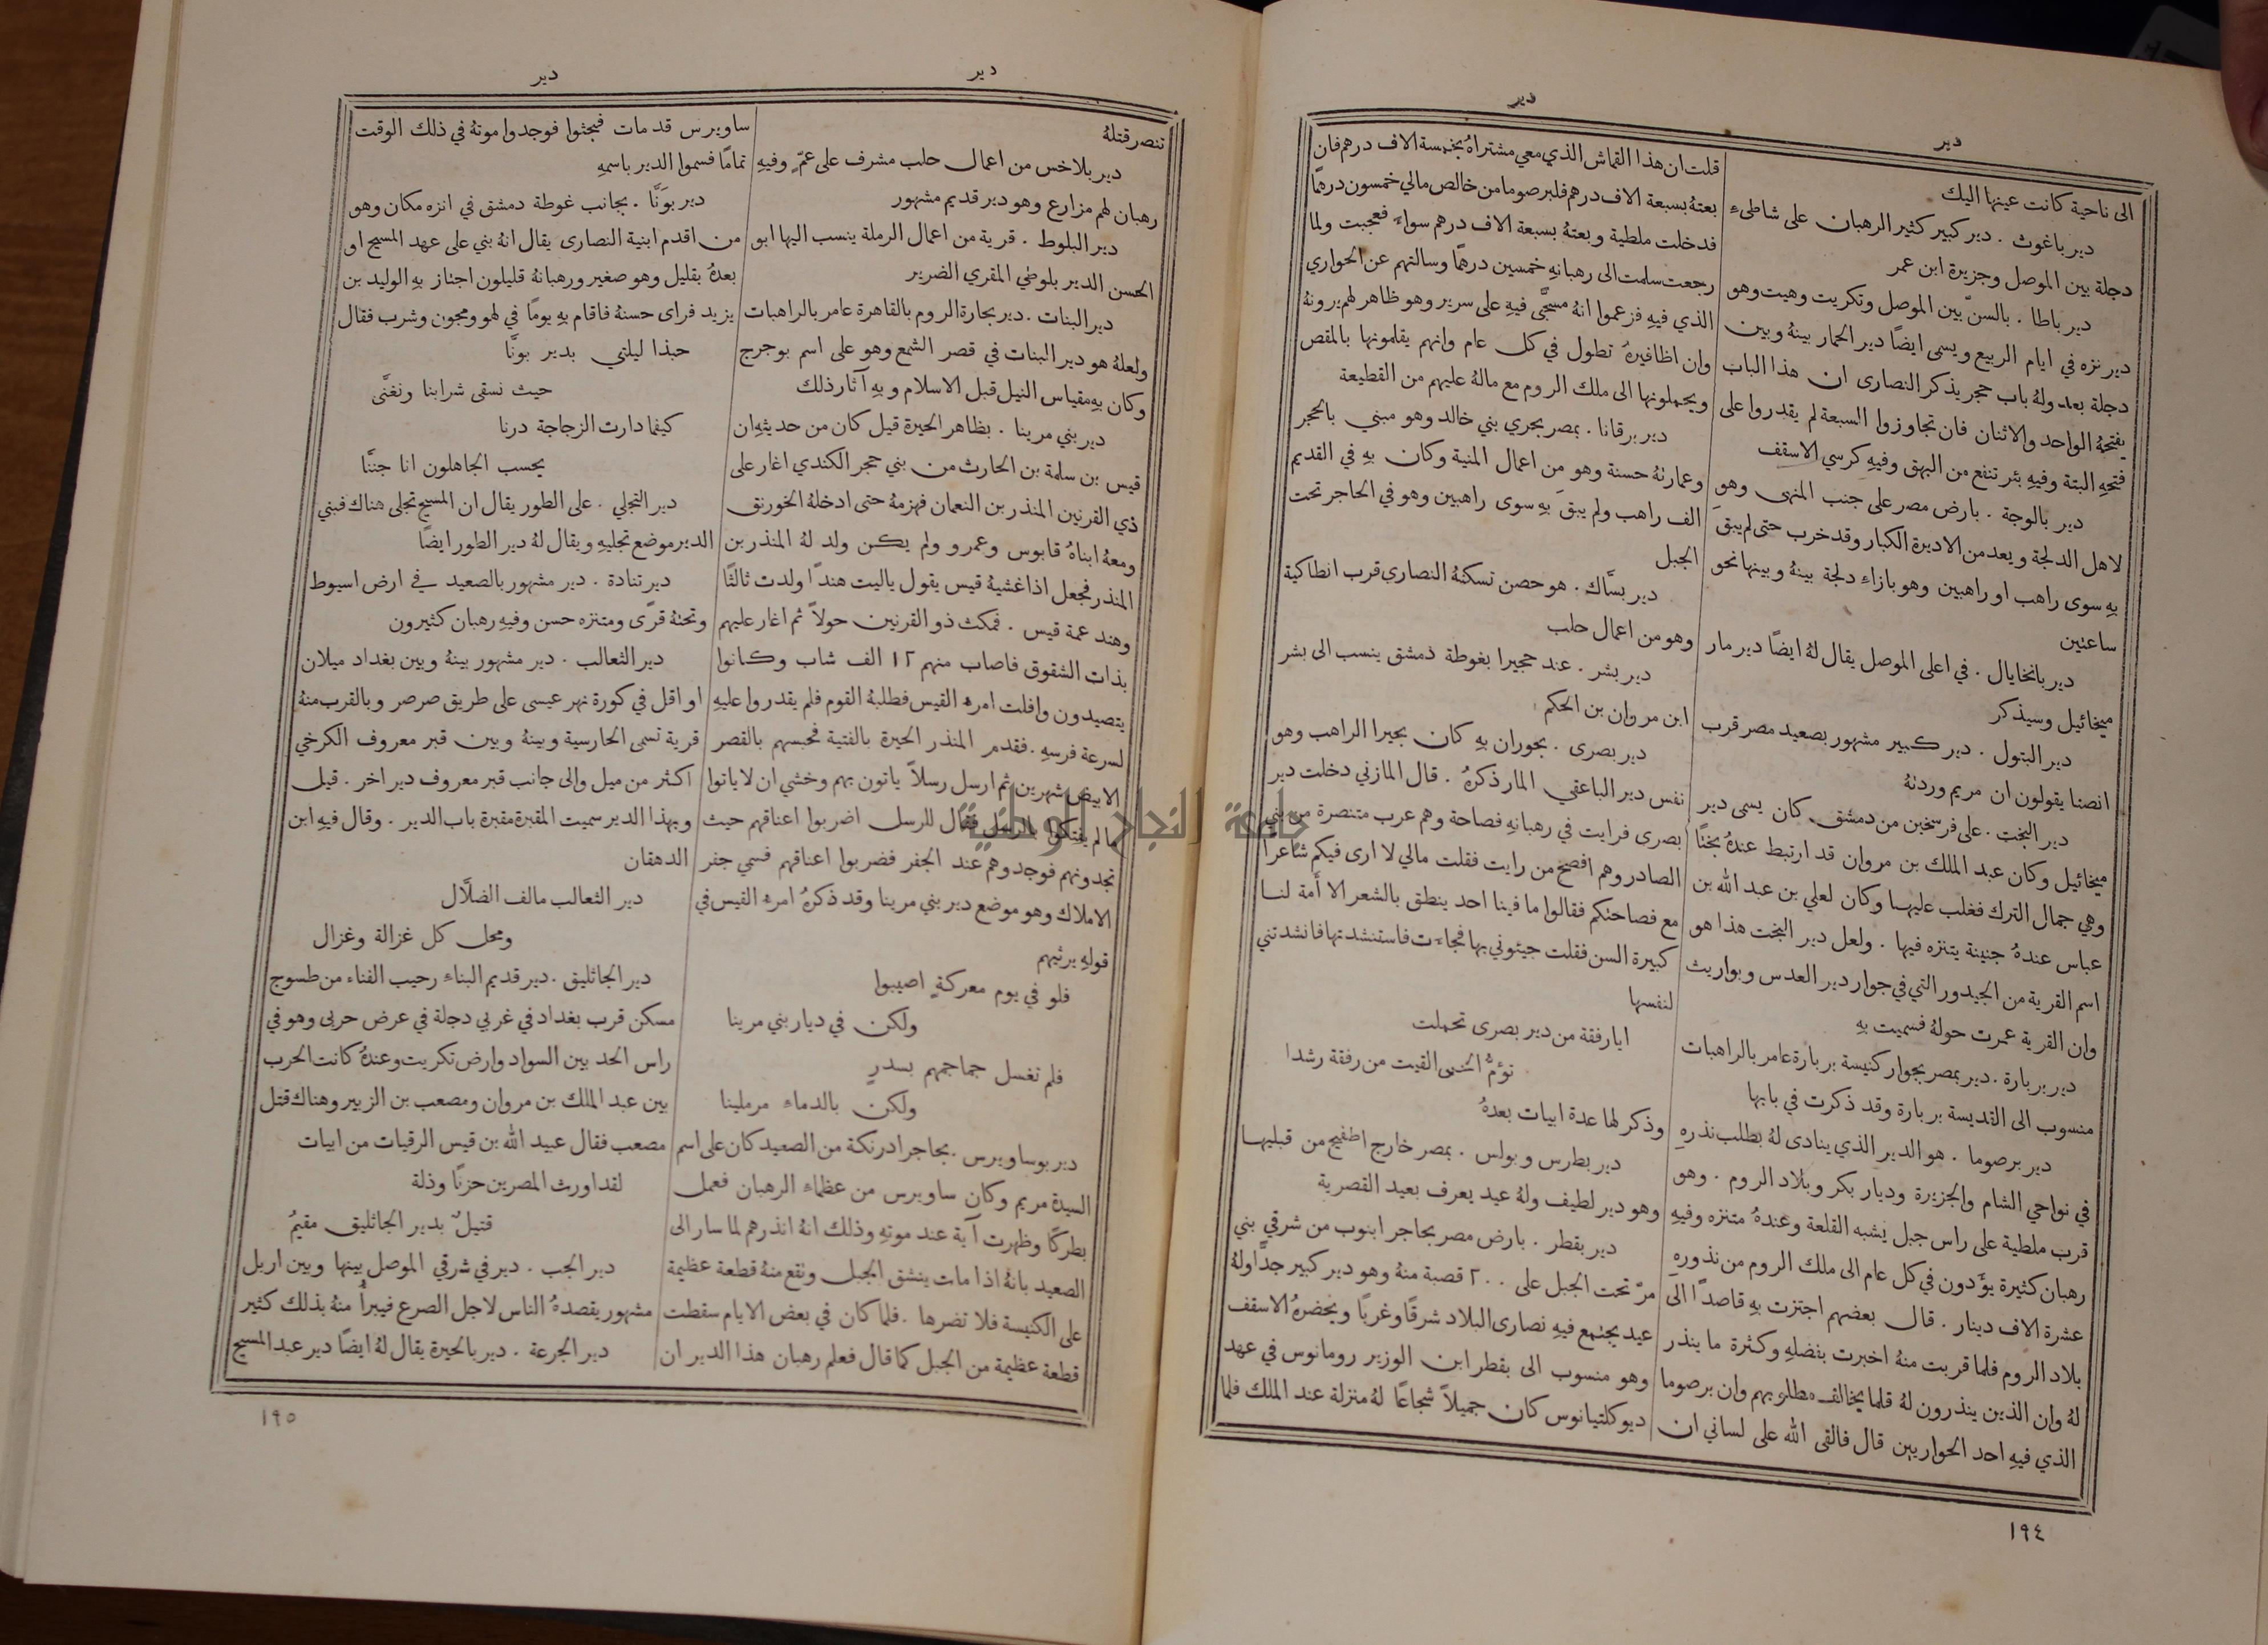 دير
دير
الى ناحية كانت عينها اليك
دير باغوث . دير كبير كثير الرهبان على شاطىء
دجلة بين الموصل وجزيرة ابن عمر
دير باطا . بالسنّ بين الموصل وتكريت وهيت وهو
دير نزه في ايام الربيع ويسمى ايضًا دير الحمار بينهُ وبين
دجلة بعد ولهُ باب حجر يذكر النصارى ان هذا الباب
يفتحهُ الواحد والاثنان فان تجاوزوا السبعة لم يقدروا على
فتحهِ البتة وفيهِ بئر تنفع من البهق وفيهِ كرسي الاسقف
دير بالوجة . بارض مصر على جنب المنهى وهو
لاهل الدلجة ويعد من الاديرة الكبار وقد خرب حتى لم يبقَ
بهِ سوى راهب او راهبين وهو بازاء دلجة بينهُ وبينها نحو
ساعتين
دير بانخايال . في اعلى الموصل يقال لهُ ايضًا دير مار
ميخائيل وسيذكر
دير البتول . دير كبير مشهور بصعيد مصر قرب
انصنا يقولون ان مريم وردتهُ
دير البخت . على فرسخين من دمشق كان يسمى دير
ميخائيل وكان عبد الملك بن مروان قد ارتبط عندهُ بختًا
وهي جمال الترك فغلب عليها وكان لعلي بن عبد الله بن
عباس عندهُ جنينة يتنزه فيها . ولعل دير البخت هذا هو
اسم القرية من الجيدور التي في جوار دير العدس وبواريث
وان القرية عمرت حولهُ فسميت بهِ
دير بربارة . دير بمصر بجوار كنيسة بربارة عامر بالراهبات
منسوب الى القديسة بربارة وقد ذكرت في بابها
دير برصوما . هو الدير الذي ينادى لهُ بطلب نذرهِ
في نواحي الشام والجزيرة وديار بكر وبلاد الروم . وهو
قرب ملطية على راس جبل يشبه القلعة وعندهُ متنزه وفيهِ
رهبان كثيرة يؤَدون في كل عام الى ملك الروم من نذورهِ
عشرة الاف دينار . قال بعضهم اجتزت بهِ قاصدًا الى
بلاد الروم فلما قربت منهُ اخبرت بفضلهِ وكثرة ما ينذر
لهُ وان الذين ينذرون لهُ قلما يخالف مطلوبهم وان برصوما
الذي فيهِ احد الحواريين قال فالقى الله على لساني ان
قلت ان هذا القماش الذي معي مشتراهُ بخمسة الاف درهم فان
بعتهُ بسبعة الاف درهم فلبرصوما من خالص مالي خمسون درهمًا
فدخلت ملطية وبعتهُ بسبعة الاف درهم سواء فعجبت ولما
رجعت سلمت الى رهبانهِ خمسين درهمًا وسالتهم عن الحواري
الذي فيهِ فزعموا انهُ مسجَّى فيهِ على سرير وهو ظاهر لهم يرونهُ
وان اظافيرهُ تطول في كل عام وانهم يقلمونها بالمقص
ويحملونها الى ملك الروم مع مالهُ عليهم من القطيعة
دير برقانا . بمصر بجري بني خالد وهو مبني بالحجر
وعمارتهُ حسنة وهو من اعمال المنية وكان بهِ في القديم
الف راهب ولم يبقَ بهِ سوى راهبين وهو في الحاجر تحت
الجبل
دير بسَّاك . هو حصن تسكنهُ النصارى قرب انطاكية
وهو من اعمال حلب
دير بشر . عند حجيرا بغوطة دمشق ينسب الى بشر
ابن مروان بن الحكم
دير بصرى . بحوران بهِ كان بحيرا الراهب وهو
نفس دير الباعقي المار ذكرهُ . قال المازني دخلت دير
بصرى فرايت في رهبانهِ فصاحة وهم عرب متنصرة من بني
الصادر وهم افصح من رايت فقلت مالي لا ارى فيكم شاعرًا
مع فصاحتكم فقالوا ما فينا احد ينطق بالشعر الا أَمة لنا
كبيرة السن فقلت جيئوني بها فجاءت فاستنشدتها فانشدتني
لنفسها
ايا رفقة من دير بصرى تحملت
تؤمُّ الحمى القيت من رفقة رشدا
وذكر لها عدة ابيات بعدهُ
دير بطرس وبولس . بمصر خارج اطفيح من قبليها
وهو دير لطيف ولهُ عيد يعرف بعيد القصرية
دير بقطر . بارض مصر بحاجر ابنوب من شرقي بني
مرّ تحت الجبل على ٢٠٠ قصبة منهُ وهو دير كبير جدًّا ولهُ
عيد يجتمع فيهِ نصارى البلاد شرقًا وغربًا ويحضرهُ الاسقف
وهو منسوب الى بقطر ابن الوزير رومانوس في عهد
ديوكلتيانوس كان جميلاً شجاعًا لهُ منزلة عند الملك فلما
١٩٤
دير
دير
تنصر قتلهُ
دير بلاخس من اعمال حلب مشرف على عمّ وفيهِ
رهبان لهم مزارع وهو دير قديم مشهور
دير البلوط . قرية من اعمال الرملة ينسب اليها ابو
الحسن الدير بلوطي المقري الضرير
دير البنات . دير بحارة الروم بالقاهرة عامر بالراهبات
ولعلهُ هو دير البنات في قصر الشمع وهو على اسم بوجرج
وكان بهِ مقياس النيل قبل الاسلام وبهِ آثار ذلك
دير بني مرينا . بظاهر الحيرة قيل كان من حديثهِ ان
قيس بن سلمة بن الحارث من بني حجر الكندي اغار على
ذي القرنين المنذر بن النعمان فهزمهُ حتى ادخلهُ الخورنق
ومعهُ ابناهُ قابوس وعمرو ولم يكن ولد لهُ المنذر بن
المنذر فجعل اذا غشيهُ قيس يقول ياليت هندًا ولدت ثالثًا
وهند عمة قيس . فمكث ذو القرنين حولاً ثم اغار عليهم
بذات الشقوق فاصاب منهم ١٢ الف شاب وكانوا
يتصيدون وافلت امرء القيس فطلبهُ القوم فلم يقدروا عليهِ
لسرعة فرسهِ . فقدم المنذر الحيرة بالفتية فحبسهم بالقصر
الابيض شهرين ثم ارسل رسلاً ياتون بهم وخشي ان لا ياتوا
فقال للرسل اضربوا اعناقهم حيث
تجدونهم فوجدوهم عند الجفر فضربوا اعناقهم فسمي جفر
الاملاك وهو موضع دير بني مرينا وقد ذكرهُ امرء القيس في
قولهِ يرثيهم
فلو في يوم معركةٍ اصيبوا
ولكن في ديار بني مرينا
فلم تغسل جماجمهم بسدرٍ
ولكن بالدماء مرملينا
دير بوساويرس . بحاجر ادرنكة من الصعيد كان على اسم
السيدة مريم وكان ساويرس من عظماء الرهبان فعمل
بطركًا وظهرت آية عند موتهِ وذلك انهُ انذرهم لما سار الى
الصعيد بانهُ اذا مات ينشق الجبل وتقع منهُ قطعة عظيمة
على الكنيسة فلا تضرها . فلما كان في بعض الايام سقطت
قطعة عظيمة من الجبل كما قال فعلم رهبان هذا الدير ان
ساويرس قد مات فبحثوا فوجدوا موتهُ في ذلك الوقت
تمامًا فسموا الدير باسمهِ
دير بوَنَّا . بجانب غوطة دمشق في انزه مكان وهو
من اقدم ابنية النصارى يقال انهُ بني على عهد المسيح او
بعدهُ بقليل وهو صغير ورهبانهُ قليلون اجتاز بهِ الوليد بن
يزيد فراى حسنهُ فاقام بهِ يومًا في لهو ومجون وشرب فقال
حبذا ليلتي بدير بونَّا
حيث نسقى شرابنا ونغنَّى
كيفما دارت الزجاجة درنا
يحسب الجاهلون انا جننَّا
دير التجلي . على الطور يقال ان المسيح تجلى هناك فبني
الدير موضع تجليهِ ويقال لهُ دير الطور ايضًا
دير تنادة . دير مشهور بالصعيد في ارض اسيوط
وتحتهُ قرًى ومتنزه حسن وفيهِ رهبان كثيرون
دير الثعالب . دير مشهور بينهُ وبين بغداد ميلان
او اقل في كورة نهر عيسى على طريق صرصر وبالقرب منهُ
قرية تسمى الحارسية وبينهُ وبين قبر معروف الكرخي
اكثر من ميل والى جانب قبر معروف دير اخر . قيل
وبهذا الدير سميت المقبرة مقبرة باب الدير . وقال فيهِ ابن
الدهقان
دير الثعالب مالف الضلَّال
ومحل كل غزالة وغزال
دير الجاثليق . دير قديم البناء رحيب الفناء من طسوج
مسكن قرب بغداد في غربي دجلة في عرض حربى وهو في
راس الحد بين السواد وارض تكريت وعندهُ كانت الحرب
بين عبد الملك بن مروان ومصعب بن الزبير وهناك قتل
مصعب فقال عبيد الله بن قيس الرقيات من ابيات
لقد اورث المصرين حزنًا وذلة
قتيلٌ بدير الجاثليق مقيمُ
دير الجب . دير في شرقي الموصل بينها وبين اربل
مشهور يقصدهُ الناس لاجل الصرع فيبرأُ منهُ بذلك كثير
دير الجرعة . دير بالحيرة يقال لهُ ايضًا دير عبد المسيح
١٩٥
جامعة النجاح الوطنية